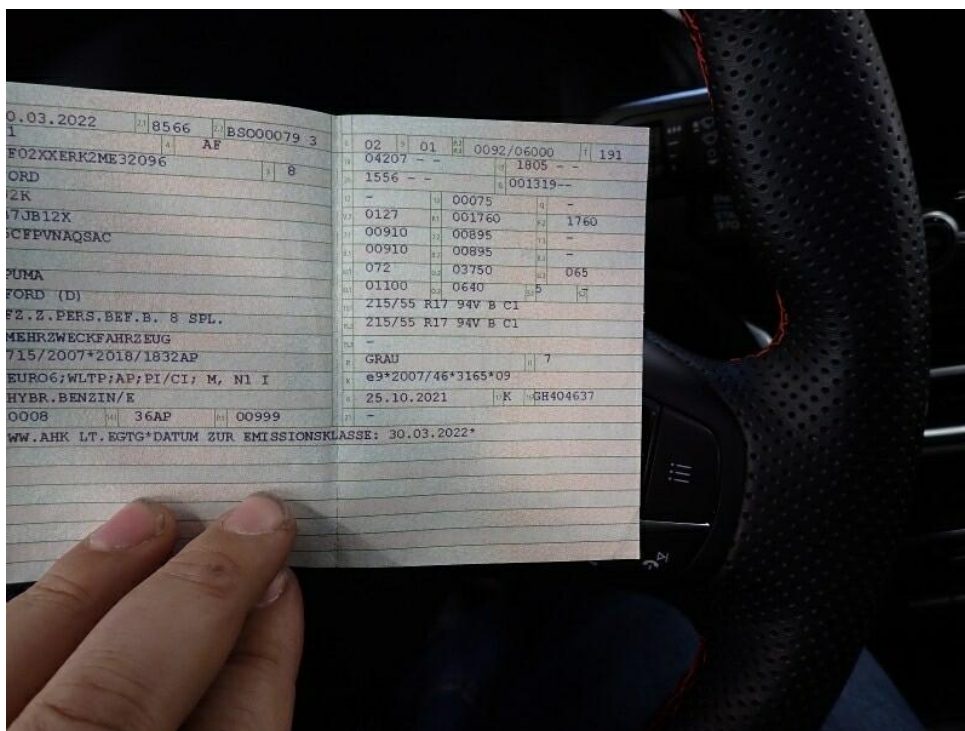 0.03.2022 8566 BSO00079 3
1 AF
F02XXERK2ME32096 8
ORD
2K
7JB12X
5CFPVNAQSAC
PUMA
FORD (D)
FZ.Z.PERS.BEF.B. 8 SPL.
MEHRZWECKFAHRZEUG
715/2007*2018/1832AP
EURO6;WLTP;AP;PI/CI; M, N1 I
HYBR.BENZIN/E
0008 36AP 00999
WW.AHK LT.EGTG*DATUM ZUR EMISSIONSKLASSE: 30.03.2022*
02 01 0092/06000 191
04207 - - 1805 - -
1556 - - 001319--
- 00075 -
0127 001760 1760
00910 00895 -
00910 00895 -
072 03750 065
01100 0640 5 -
215/55 R17 94V B C1
215/55 R17 94V B C1
-
GRAU 7
e9*2007/46*3165*09
25.10.2021 K GH404637
-